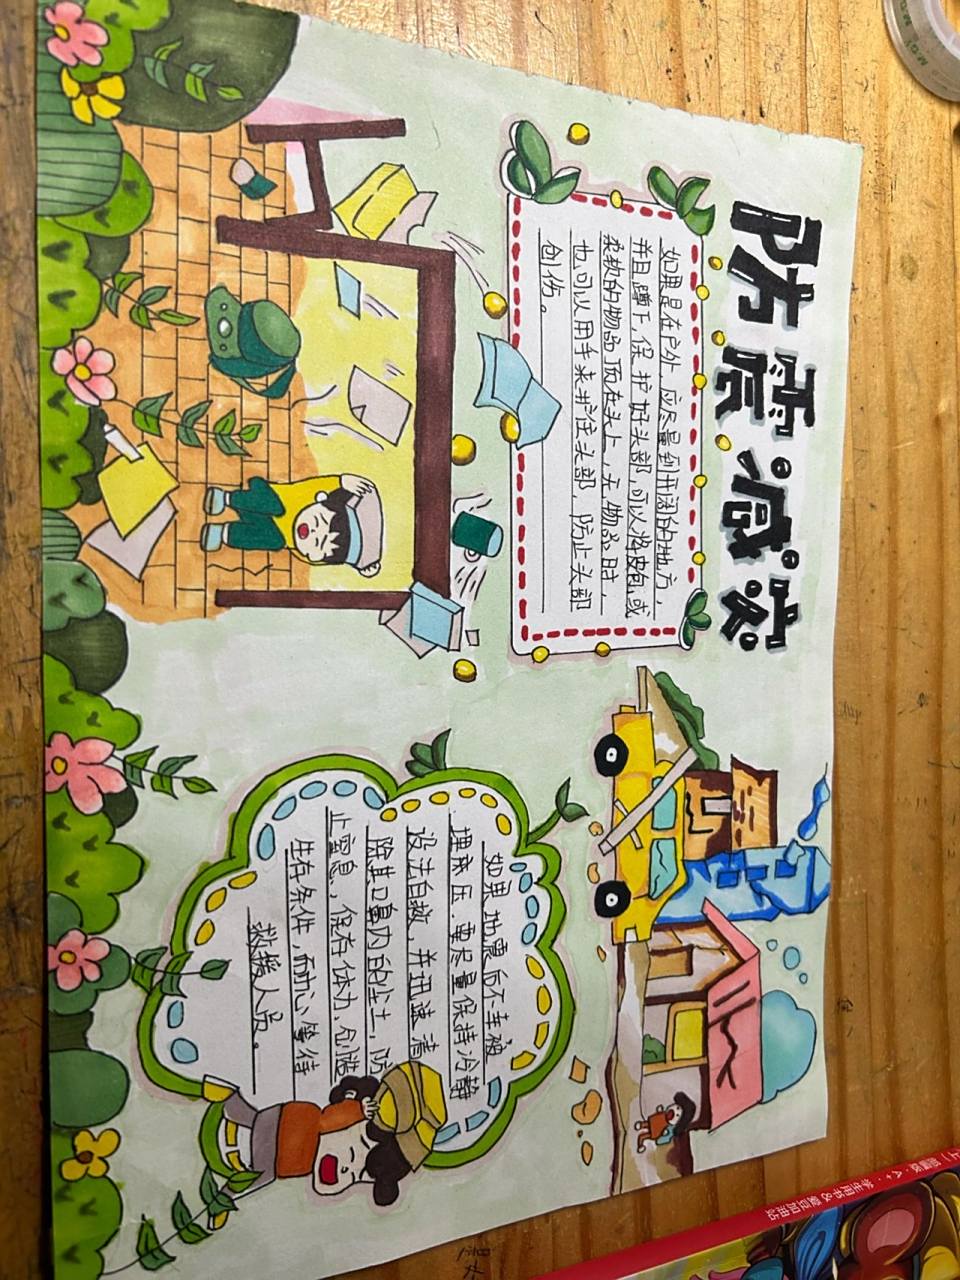 防震减灾
如果是在户外,应尽量到开阔的地方,
并且蹲下,保护好头部,可以将皮包或
柔软的物品顶在头上,无物品时,
也可以用手来护住头部,防止头部
创伤。
如果地震后不幸被
埋废压.要尽量保持冷静
设法自救,并迅速清
除其口鼻内的尘土,防
止窒息,保存体力,创造
生存条件,耐心等待
救援人员。
学生用书&爱豆加油站